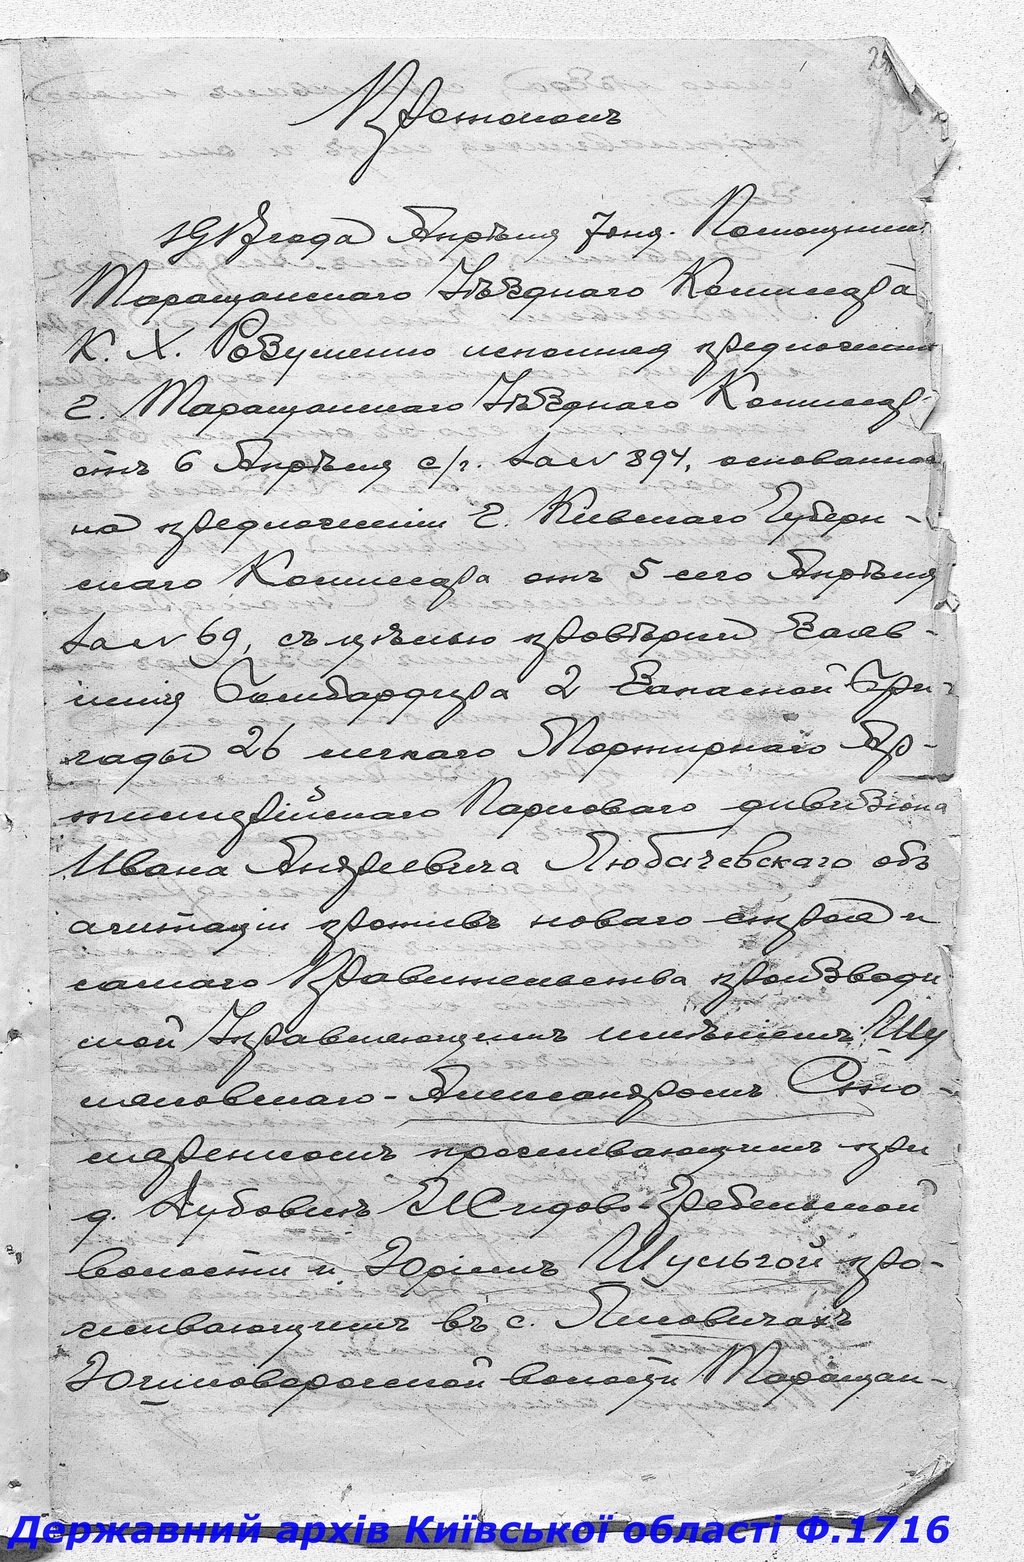 Протоколъ
1917 года Апрѣля 7 дня. Помощникъ
Таращанскаго Уѣзднаго Комиссара
К. Х. Розушенко исполняя предложеніе
г. Таращанскаго Уѣзднаго Комиссар-
отъ 6 Апрѣля с/г. за № 894, основанное
на предложеніи г. Кіевскаго Губерн-
скаго Комиссара отъ 5 сего Апрѣля
за № 69, съ цѣлью провѣрки Заяв-
ленія Бомбардира 2 Запасной Бри-
гады 26 легкаго Мортирнаго Ар-
тиллерійскаго Парковаго дивизіона
Ивана Андреевича Любачевскаго объ
агитаціи противъ новаго строя и
самаго Правительства производи
мой Управляющимъ имѣніемъ Шу
мановскаго - Александромъ
проживающимъ при
д. Дубовкѣ Жидово-Гребельской
волости и Юріемъ Шульгой про-
живающимъ въ с. Лисовичахъ
волости Таращан-
Державний архів Київської області Ф.1716